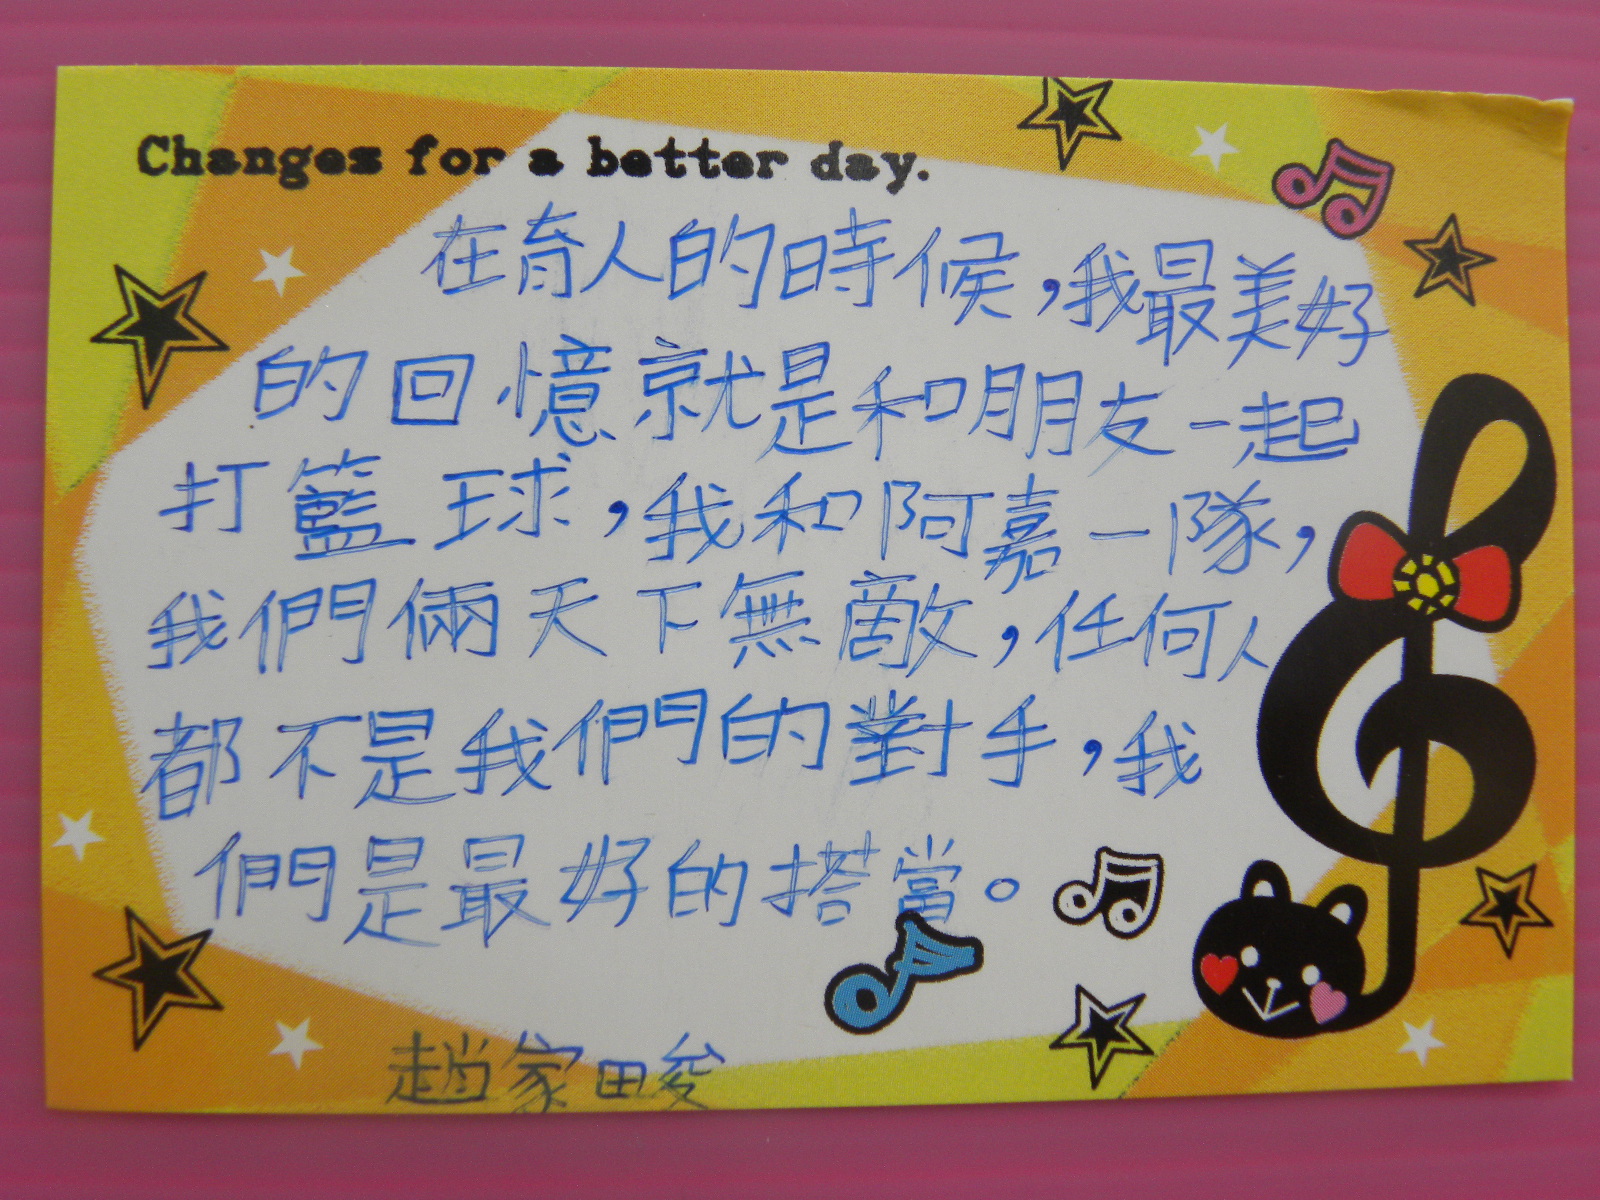 Changes for a better day.
在育人的時候,我最美好
的回憶就是和朋友一起
打籃球,我和阿嘉一隊,
我們倆天下無敵,任何人
都不是我們的對手,我
們是最好的搭當。
趙家畯